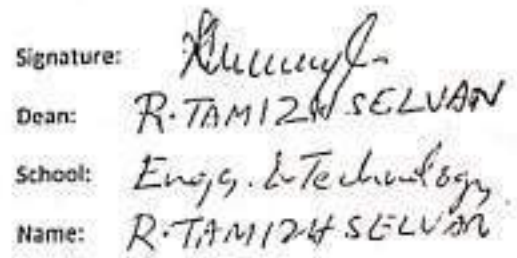 Signature:
Dean: R. TAMIZH SELVAN
School: Engg. & Technology
Name: R. TAMIZH SELVAN